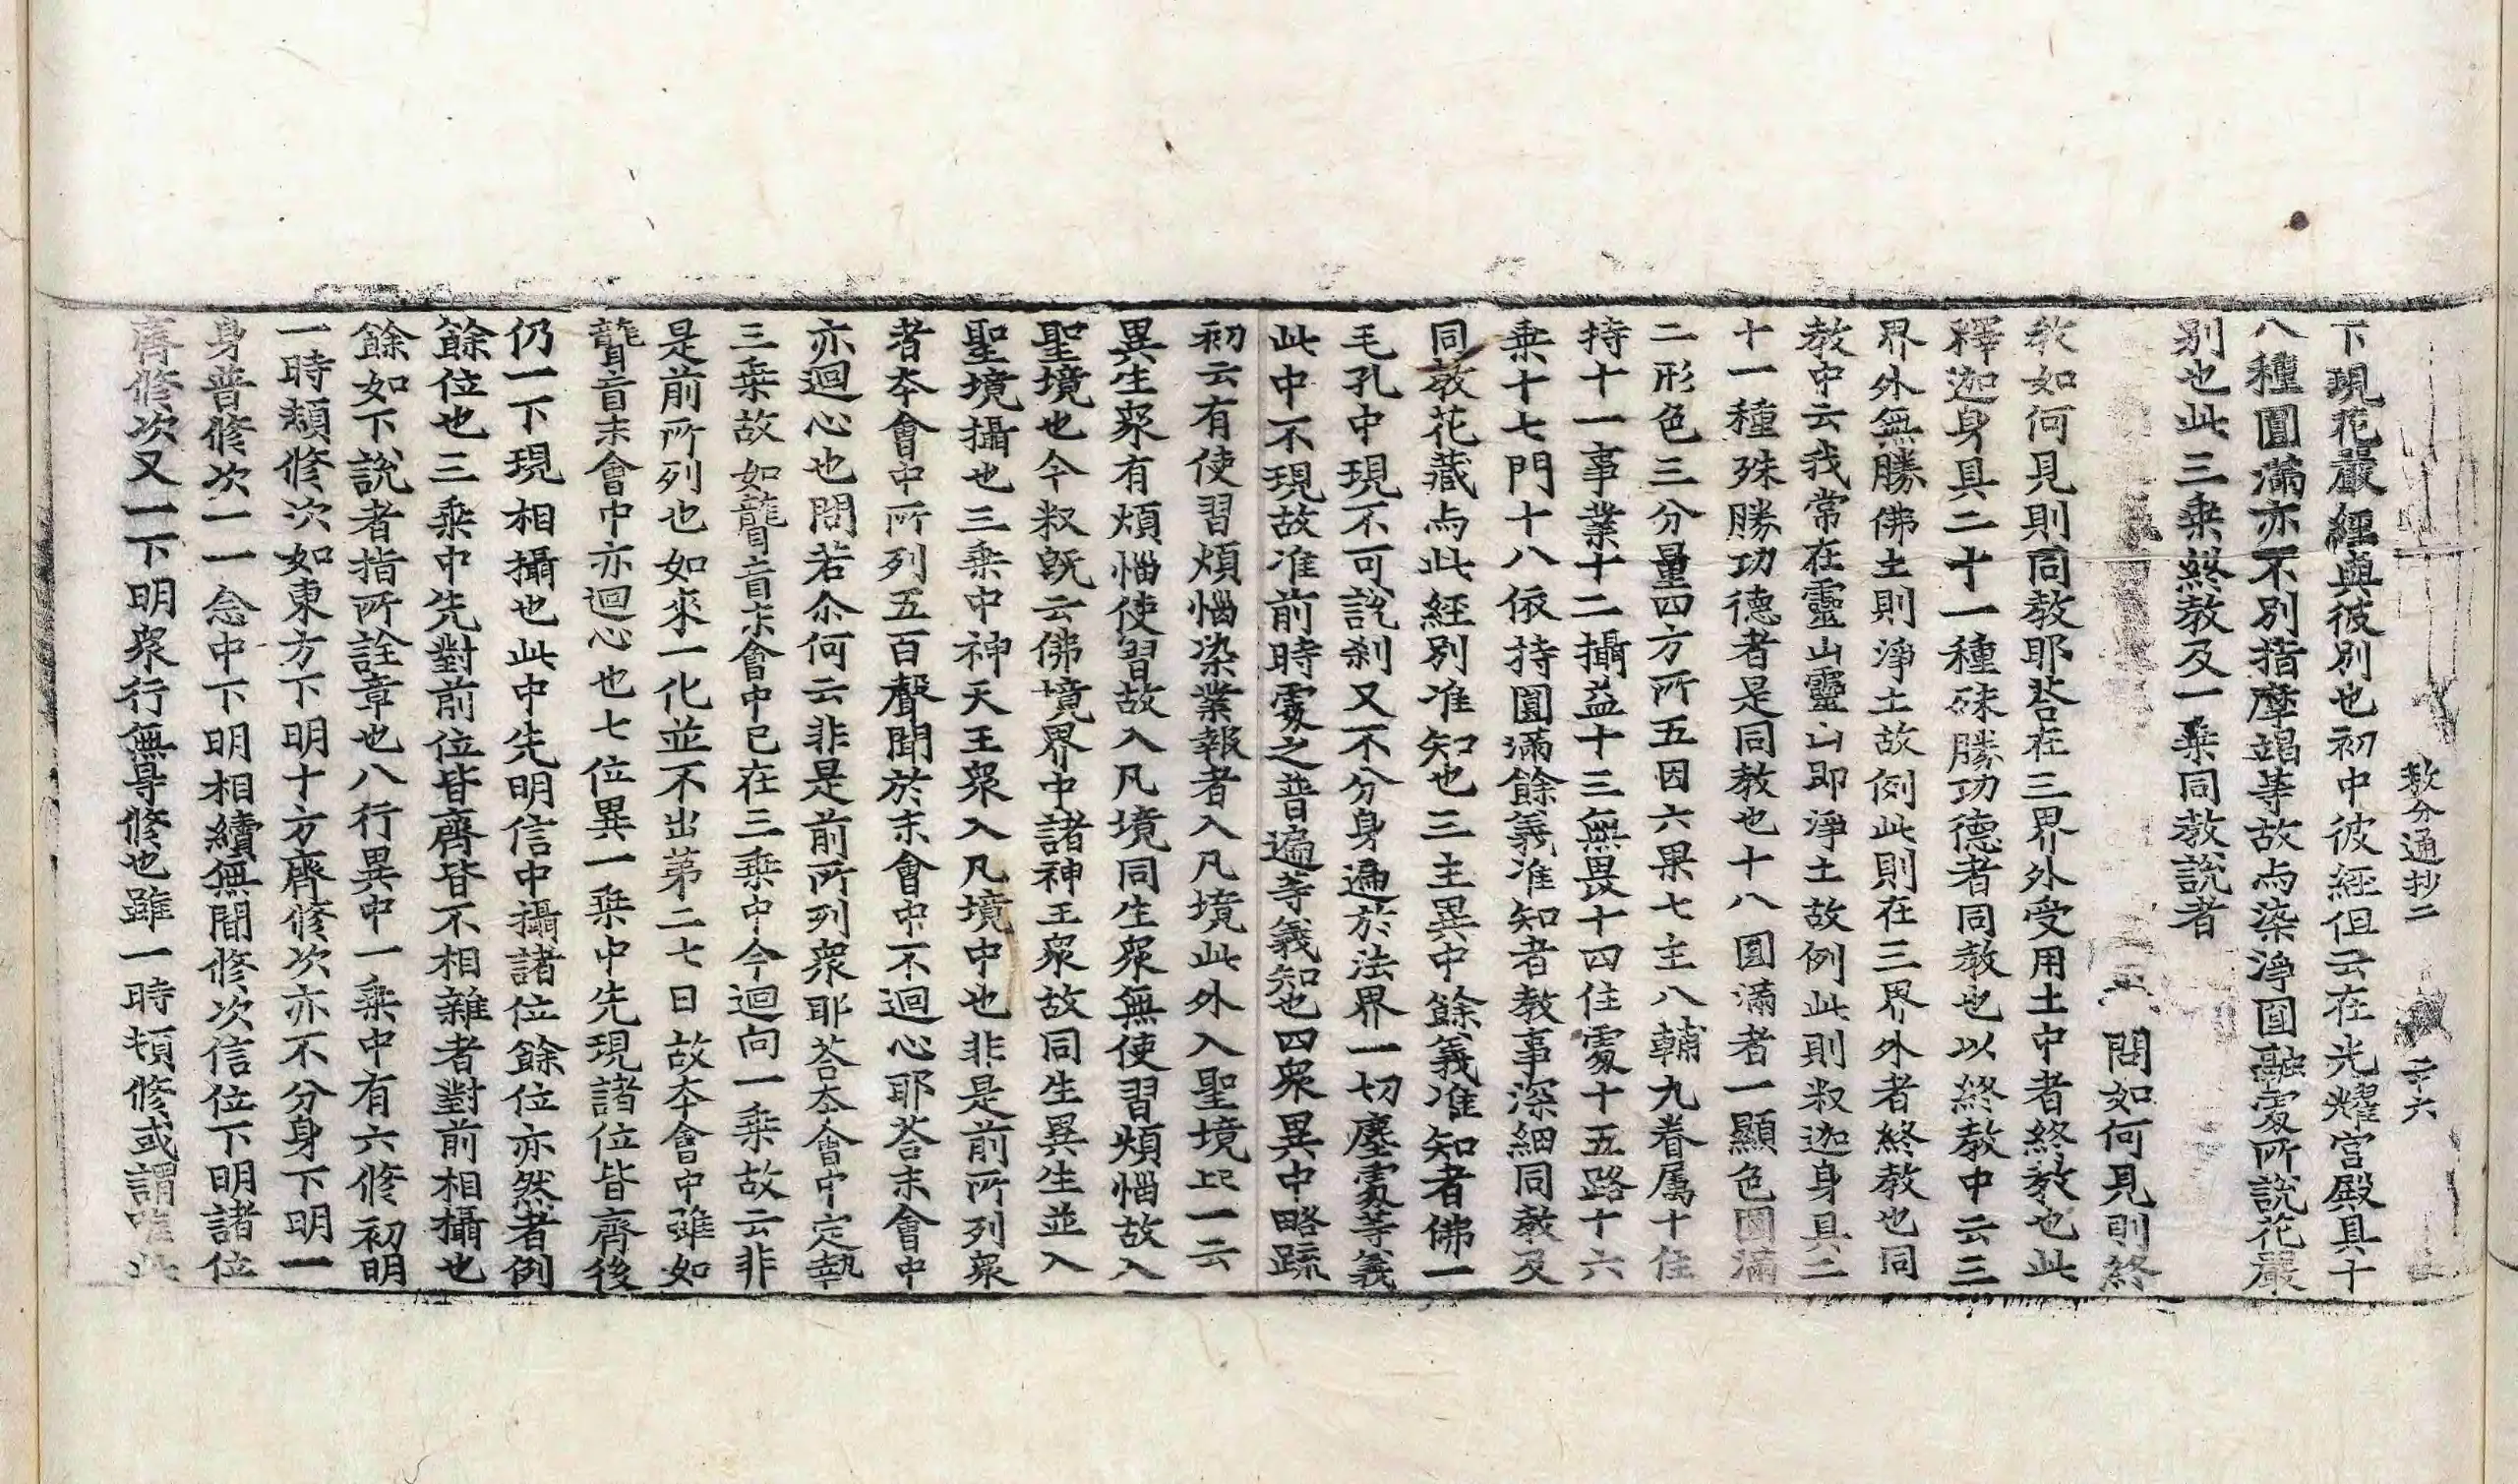 教分通抄二 二十六
下現花嚴經與彼別也初中彼經但云在光耀宮殿具十
八種圓滿亦不別指摩竭等故与染淨圓融處所說花嚴
別也此三乘終教及一乘同教說者
問如何見則終
教如何見則同教耶答在三界外受用土中者終教也此
釋迦身具二十一種殊勝功德者同教也以終教中云三
界外無勝佛土則淨土故例此則在三界外者終教也同
教中云我常在靈山靈山即淨土故例此則釈迦身具二
十一種殊勝功德者是同教也十八圓滿者一顯色圓滿
二形色三分量四方所五因六果七主八輔九眷属十住
持十一事業十二攝益十三無畏十四住處十五路十六
乘十七門十八依持圓滿餘義准知者教事深細同教及
同教花藏与此經別准知也三主異中餘義准知者佛一
毛孔中現不可說刹又不分身遍於法界一切塵處等義
此中不現故准前時處之普遍等義知也四衆異中略疏
初云有使習煩惱染業報者入凡境此外入聖境上一云
異生衆有煩惱使習故入凡境同生衆無使習煩惱故入
聖境也今釈旣云佛境界中諸神王衆故同生異生並入
聖境攝也三乘中神天王衆入凡境中也非是前所列衆
者本會中所列五百聲聞於末會中不迴心耶答末會中
亦迴心也問若尒何云非是前所列衆耶荅本會中定執
三乘故如聾盲末會中已在三乘中今迴向一乘故云非
是前所列也如來一化並不出第二七日故本會中雖如
聾盲末會中亦迴心也七位異一乘中先現諸位皆齊後
仍一下現相攝也此中先明信中攝諸位餘位亦然者例
餘位也三乘中先對前位皆齊皆不相雜者對前相攝也
餘如下說者指所詮章也八行異中一乘中有六修初明
一時頓修次如東方下明十方齊修次亦不分身下明一
身普修次一一念中下明相續無間修次信位下明諸位
齊修次又一下明衆行無㝵修也雖一時頓修或謂